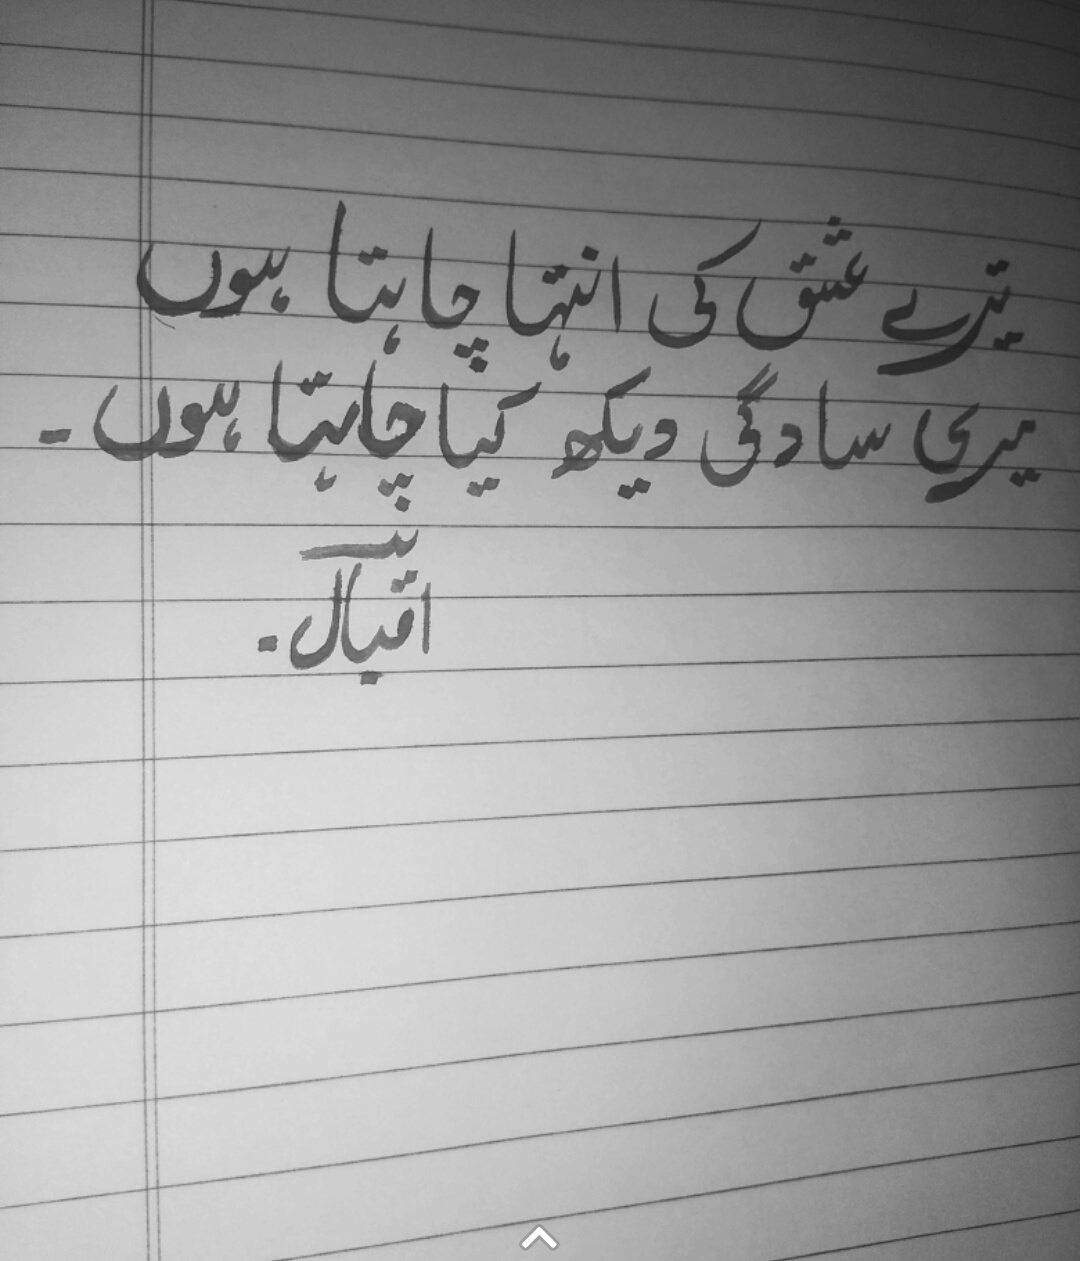 تیرے عشق کی انتہا چاہتا ہوں
میری سادگی دیکھ کیا چاہتا ہوں ۔
اقبال ۔